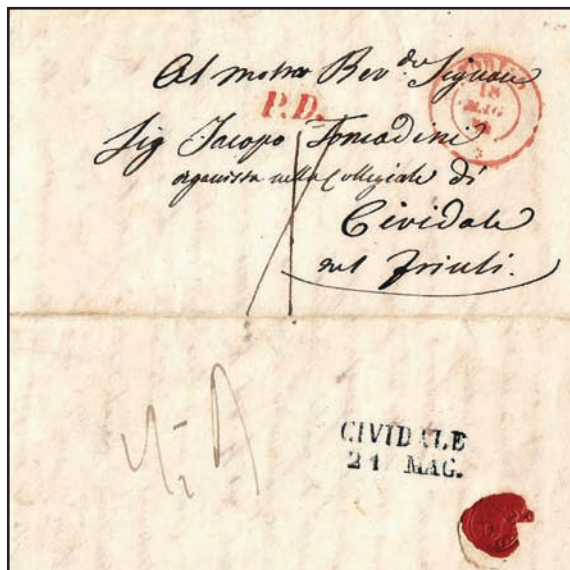 Al molto Rev.do Signore
P.D.
18
MAG
Sig Jacopo Tomadini
organista nella Collegiale di
Cividale
nel Friuli.
CIVIDALE
21 MAG.